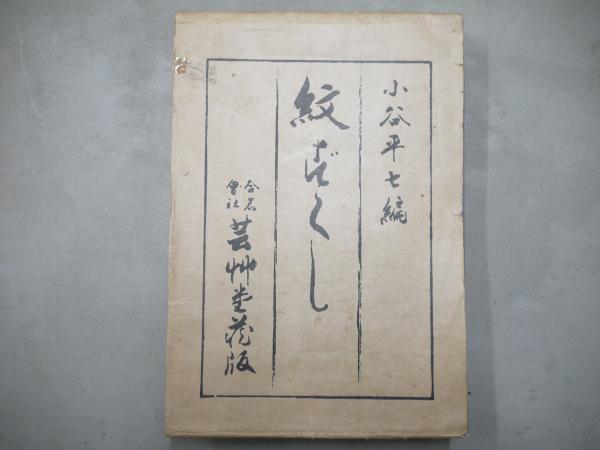 小谷平七編
紋づくし
合名會社
芸艸堂蔵版